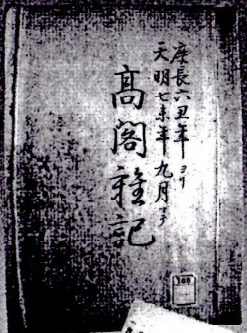 慶長六丑年ヨリ
天明七未年九月マテ
高閣雑記